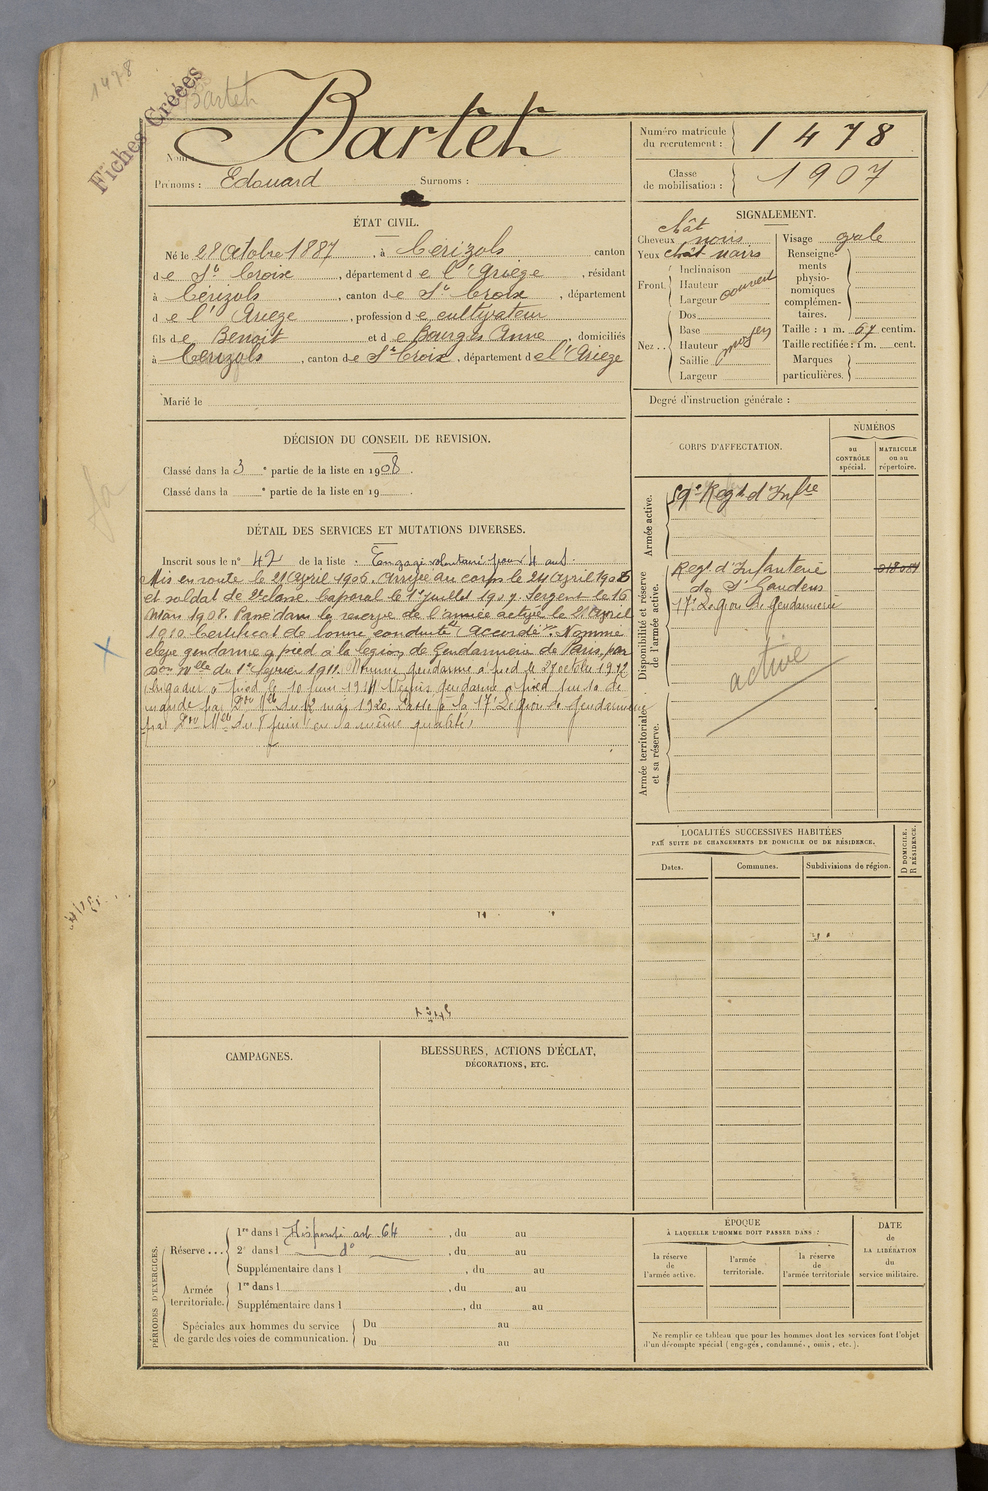 1478
Bartet
Fiches Créées
Nom : Bartet
Prénoms : Edouard Surnoms :
Numéro matricule du recrutement : 1478
Classe de mobilisation : 1907
ÉTAT CIVIL.
Né le 28 Octobre 1887, à Cérizols canton
de Ste Croix, département de l'Ariège, résidant
à Cérizols, canton de Ste Croix, département
de l'Ariège, profession de cultivateur
fils de Benoit et de Bourgès Anne domiciliés
à Cérizols, canton de Ste Croix, département de l'Ariège
Marié le
SIGNALEMENT.
chât
Cheveux noirs
Yeux chât noirs
Front. Inclinaison
Hauteur
Largeur couvert
Nez.. Dos
Base
Hauteur moyen
Saillie
Largeur
Visage ovale
Renseignements physionomiques complémentaires.
Taille : 1 m. 67 centim.
Taille rectifiée : 1 m. cent.
Marques particulières.
Degré d'instruction générale :
DÉCISION DU CONSEIL DE REVISION.
Classé dans la 3e partie de la liste en 1908.
Classé dans la e partie de la liste en 19 .
DÉTAIL DES SERVICES ET MUTATIONS DIVERSES.
Inscrit sous le n° 42 de la liste. Engagé volontaire pour 4 ans.
Mis en route le 21 Avril 1906. Arrivé au corps le 24 Avril 1906
et soldat de 2e classe. Caporal le 1er juillet 1907. Sergent le 16
Mars 1908. Passé dans la réserve de l'armée active le 21 Avril
1910. Certificat de bonne conduite "Accordé". Nommé
élève gendarme à pied à la légion de Gendarmerie de Paris, par
Don Mlle du 1er février 1911. Nommé gendarme à pied le 27 octobre 1912
brigadier à pied le 10 juin 1914 Remis gendarme à pied sur sa de
mande par Don Mlle du 12 mai 1920. Passé à la 17e Légion de gendarmerie
par Don Mlle du 8 juin (en la même qualité)
CORPS D'AFFECTATION.
NUMÉROS
au CONTRÔLE spécial.
MATRICULE ou au répertoire.
Armée active.
59e Regt d'Infrie
Disponibilité et réserve de l'armée active.
Regt d'Infanterie
de St Gaudens
17e Légion de gendarmerie
active
Armée territoriale et sa réserve.
LOCALITÉS SUCCESSIVES HABITÉES
PAR SUITE DE CHANGEMENTS DE DOMICILE OU DE RÉSIDENCE.
Dates.
Communes.
Subdivisions de région.
D DOMICILE.
R RÉSIDENCE.
CAMPAGNES.
BLESSURES, ACTIONS D'ÉCLAT,
DÉCORATIONS, ETC.
PÉRIODES D'EXERCICES.
Réserve... 1re dans l Dispensé art. 64, du au
2e dans l d°, du au
Supplémentaire dans l , du au
Armée territoriale. 1re dans l , du au
Supplémentaire dans l , du au
Spéciales aux hommes du service de garde des voies de communication. Du au
Du au
ÉPOQUE
À LAQUELLE L'HOMME DOIT PASSER DANS :
la réserve de l'armée active.
l'armée territoriale.
la réserve de l'armée territoriale
DATE de LA LIBÉRATION du service militaire.
Ne remplir ce tableau que pour les hommes dont les services font l'objet
d'un décompte spécial (engagés, condamnés, omis, etc.).